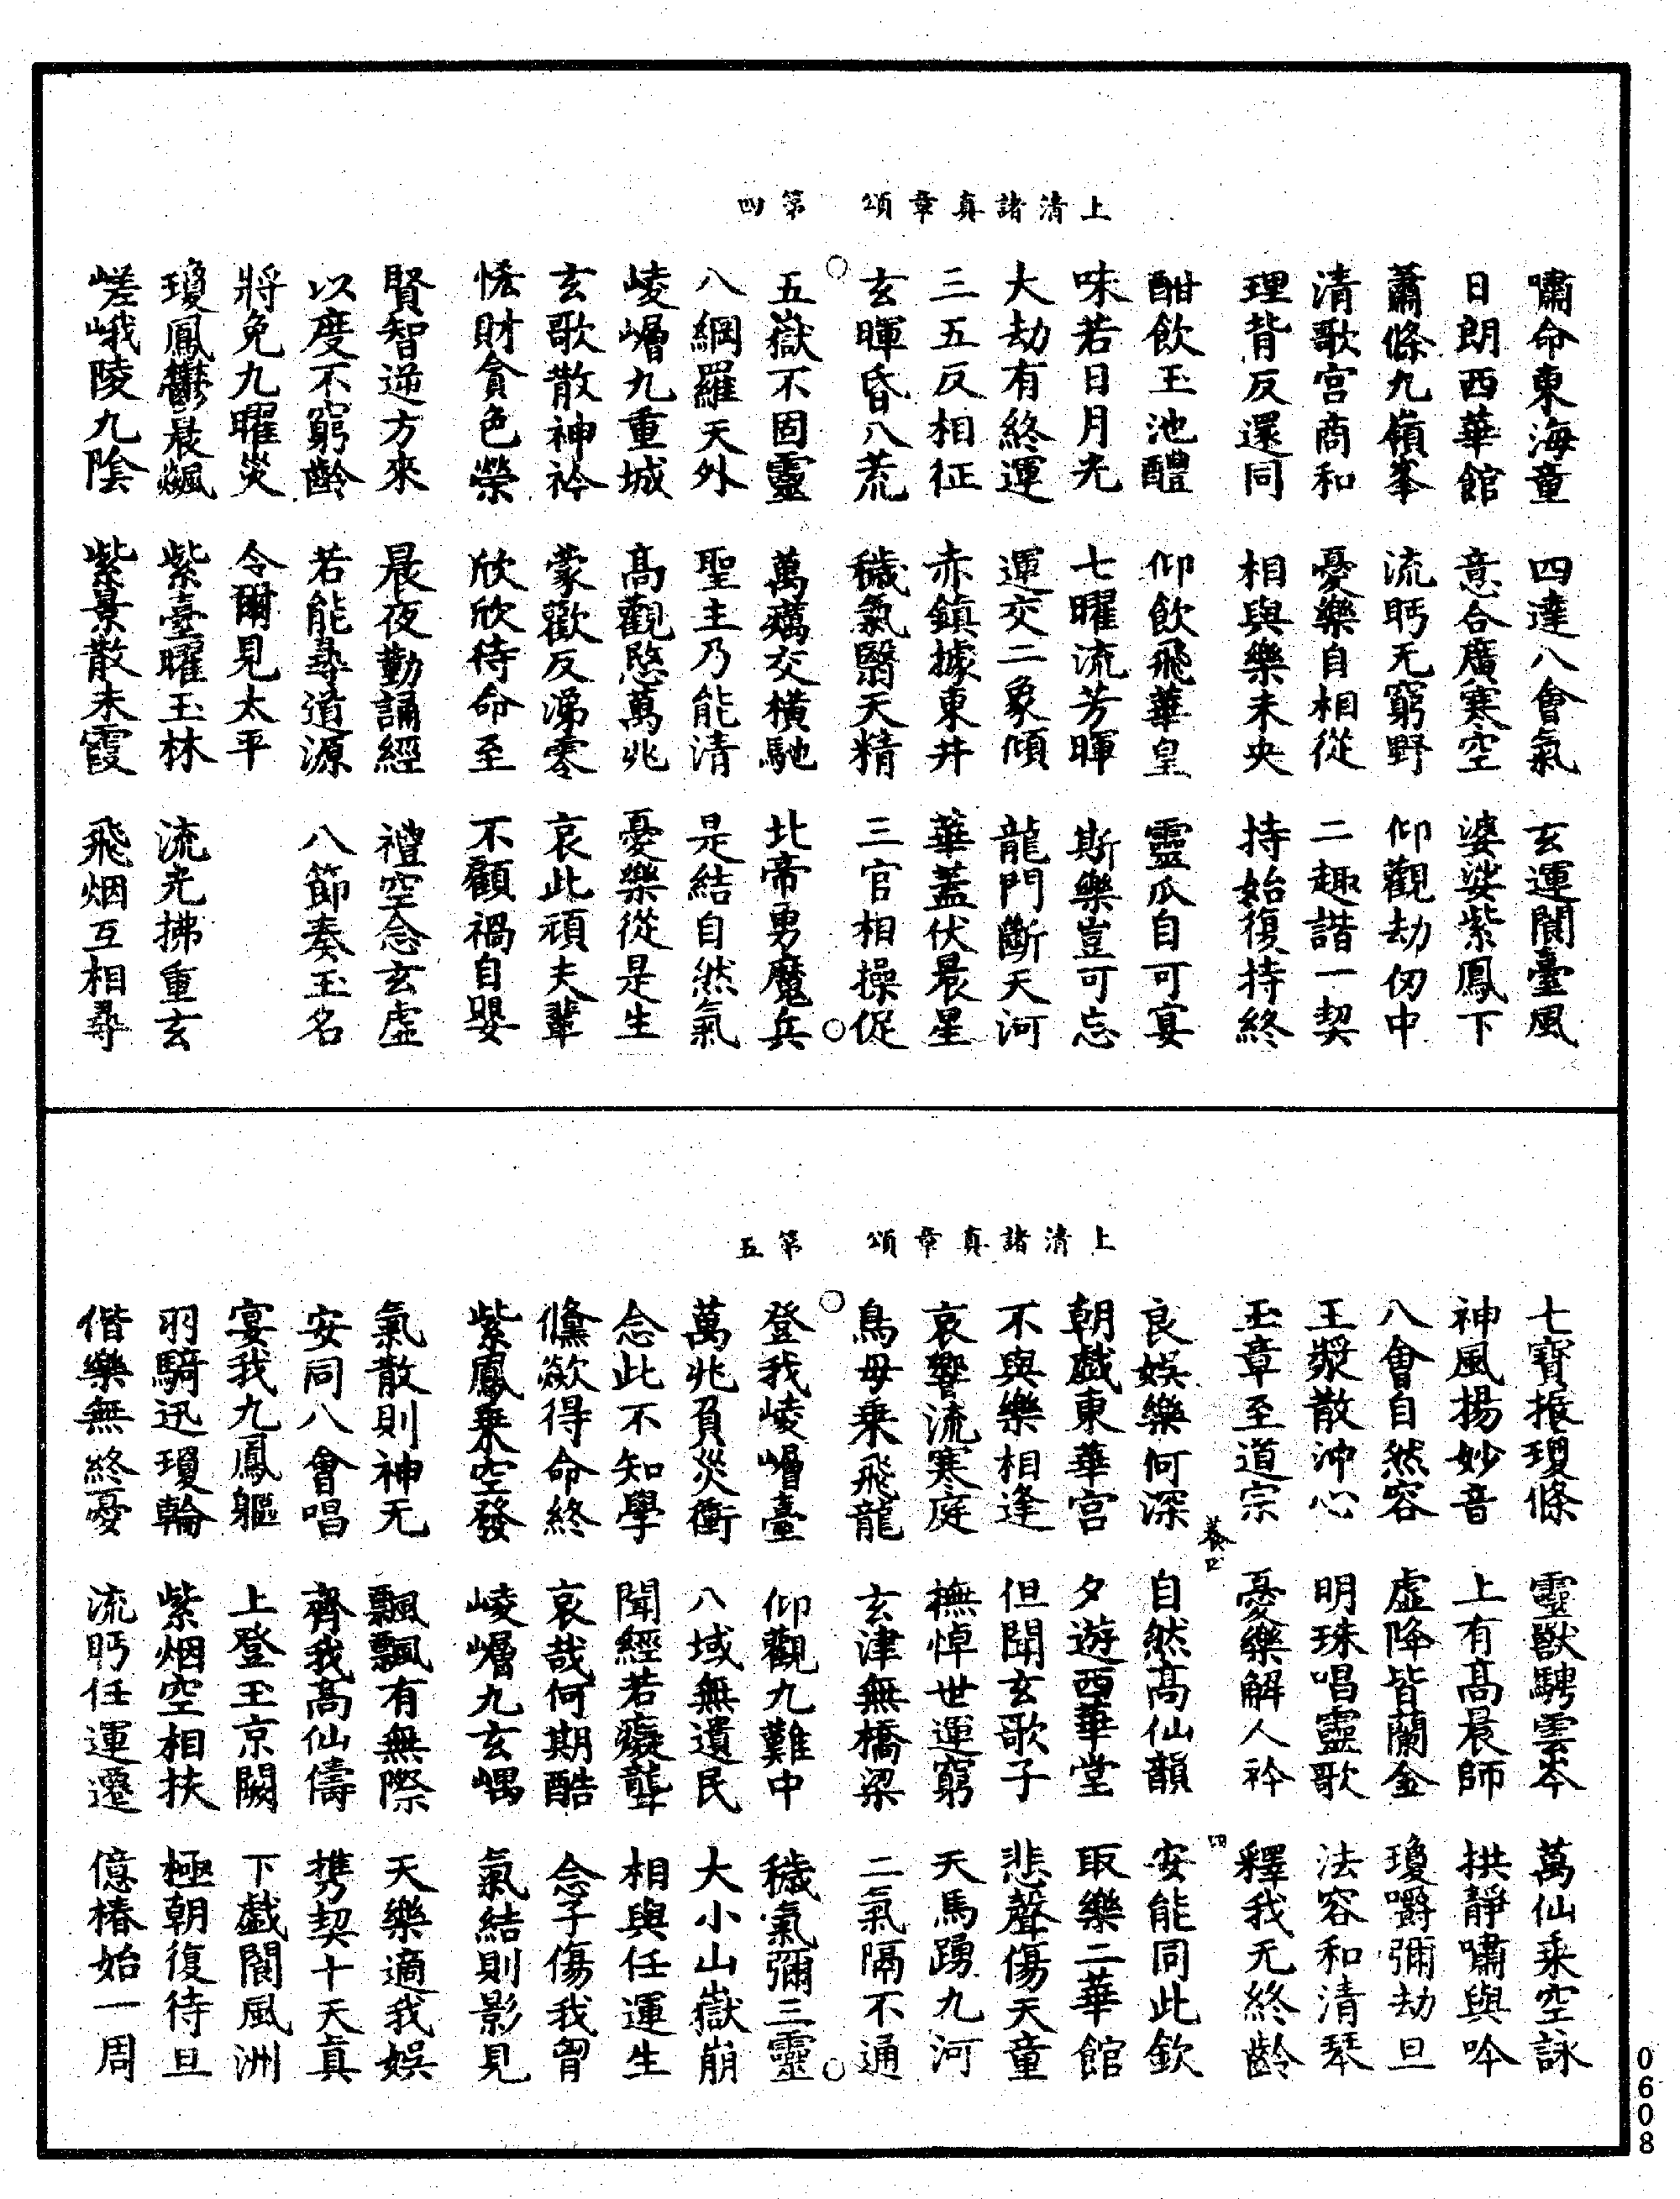 上清諸真章頌　第四
嘯命東海童　四達八會氣　玄運閬臺風
日朗西華館　意合廣寒空　婆娑紫鳳下
蕭條九嶺峯　流眄无窮野　仰觀劫仞中
清歌宮商和　憂樂自相從　二趣諧一契
理背反還同　相與樂未央　持始復持終
酣飲玉池醴　仰飲飛華皇　靈瓜自可宴
味若日月光　七曜流芳暉　斯樂豈可忘
大劫有終運　運交二象傾　龍門斷天河
三五反相征　赤鎮據東井　華蓋伏晨星
玄暉昏八荒　穢氣翳天精　三官相操促
五嶽不固靈　萬癘交橫馳　北帝勇魔兵
八綱羅天外　聖主乃能清　是結自然氣
崚嶒九重城　高觀愍萬兆　憂樂從是生
玄歌散神衿　蒙歡反涕零　哀此頑夫輩
悋財貪色榮　欣欣待命至　不顧禍自嬰
賢智逆方來　晨夜勤誦經　禮空念玄虛
以度不窮齡　若能尋道源　八節奏玉名
將免九曜災　令爾見太平
瓊鳳鬱晨飈　紫臺曜玉林　流光拂重玄
嵯峨陵九陰　紫景散朱霞　飛烟互相尋
上清諸真章頌　第五
七寶振瓊條　靈獸騁雲岑　萬仙乘空詠
神風揚妙音　上有高晨師　拱靜嘯與吟
八會自然容　虛降皆蘭金　瓊嚼彌劫旦
玉漿散沖心　明珠唱靈歌　法容和清琴
玉章至道宗　憂樂解人衿　釋我无終齡
養四　四
良娛樂何深　自然高仙韻　安能同此欽
朝戲東華宮　夕遊西華堂　取樂二華館
不與樂相逢　但聞玄歌子　悲聲傷天童
哀響流寒庭　撫悼世運窮　天馬踴九河
鳥母乘飛龍　玄津無橋梁　二氣隔不通
登我崚嶒臺　仰觀九難中　穢氣彌三靈
萬兆負災衝　八域無遺民　大小山嶽崩
念此不知學　聞經若癡聾　相與任運生
儵歘得命終　哀哉何期酷　念子傷我胷
紫鳳乘空發　崚嶒九玄嵎　氣結則影見
氣散則神无　飄飄有無際　天樂適我娛
安同八會唱　齊我高仙儔　携契十天真
宴我九鳳軀　上登玉京闕　下戲閬風洲
羽騎迅瓊輪　紫烟空相扶　極朝復待旦
偕樂無終憂　流眄任運遷　億椿始一周
0608